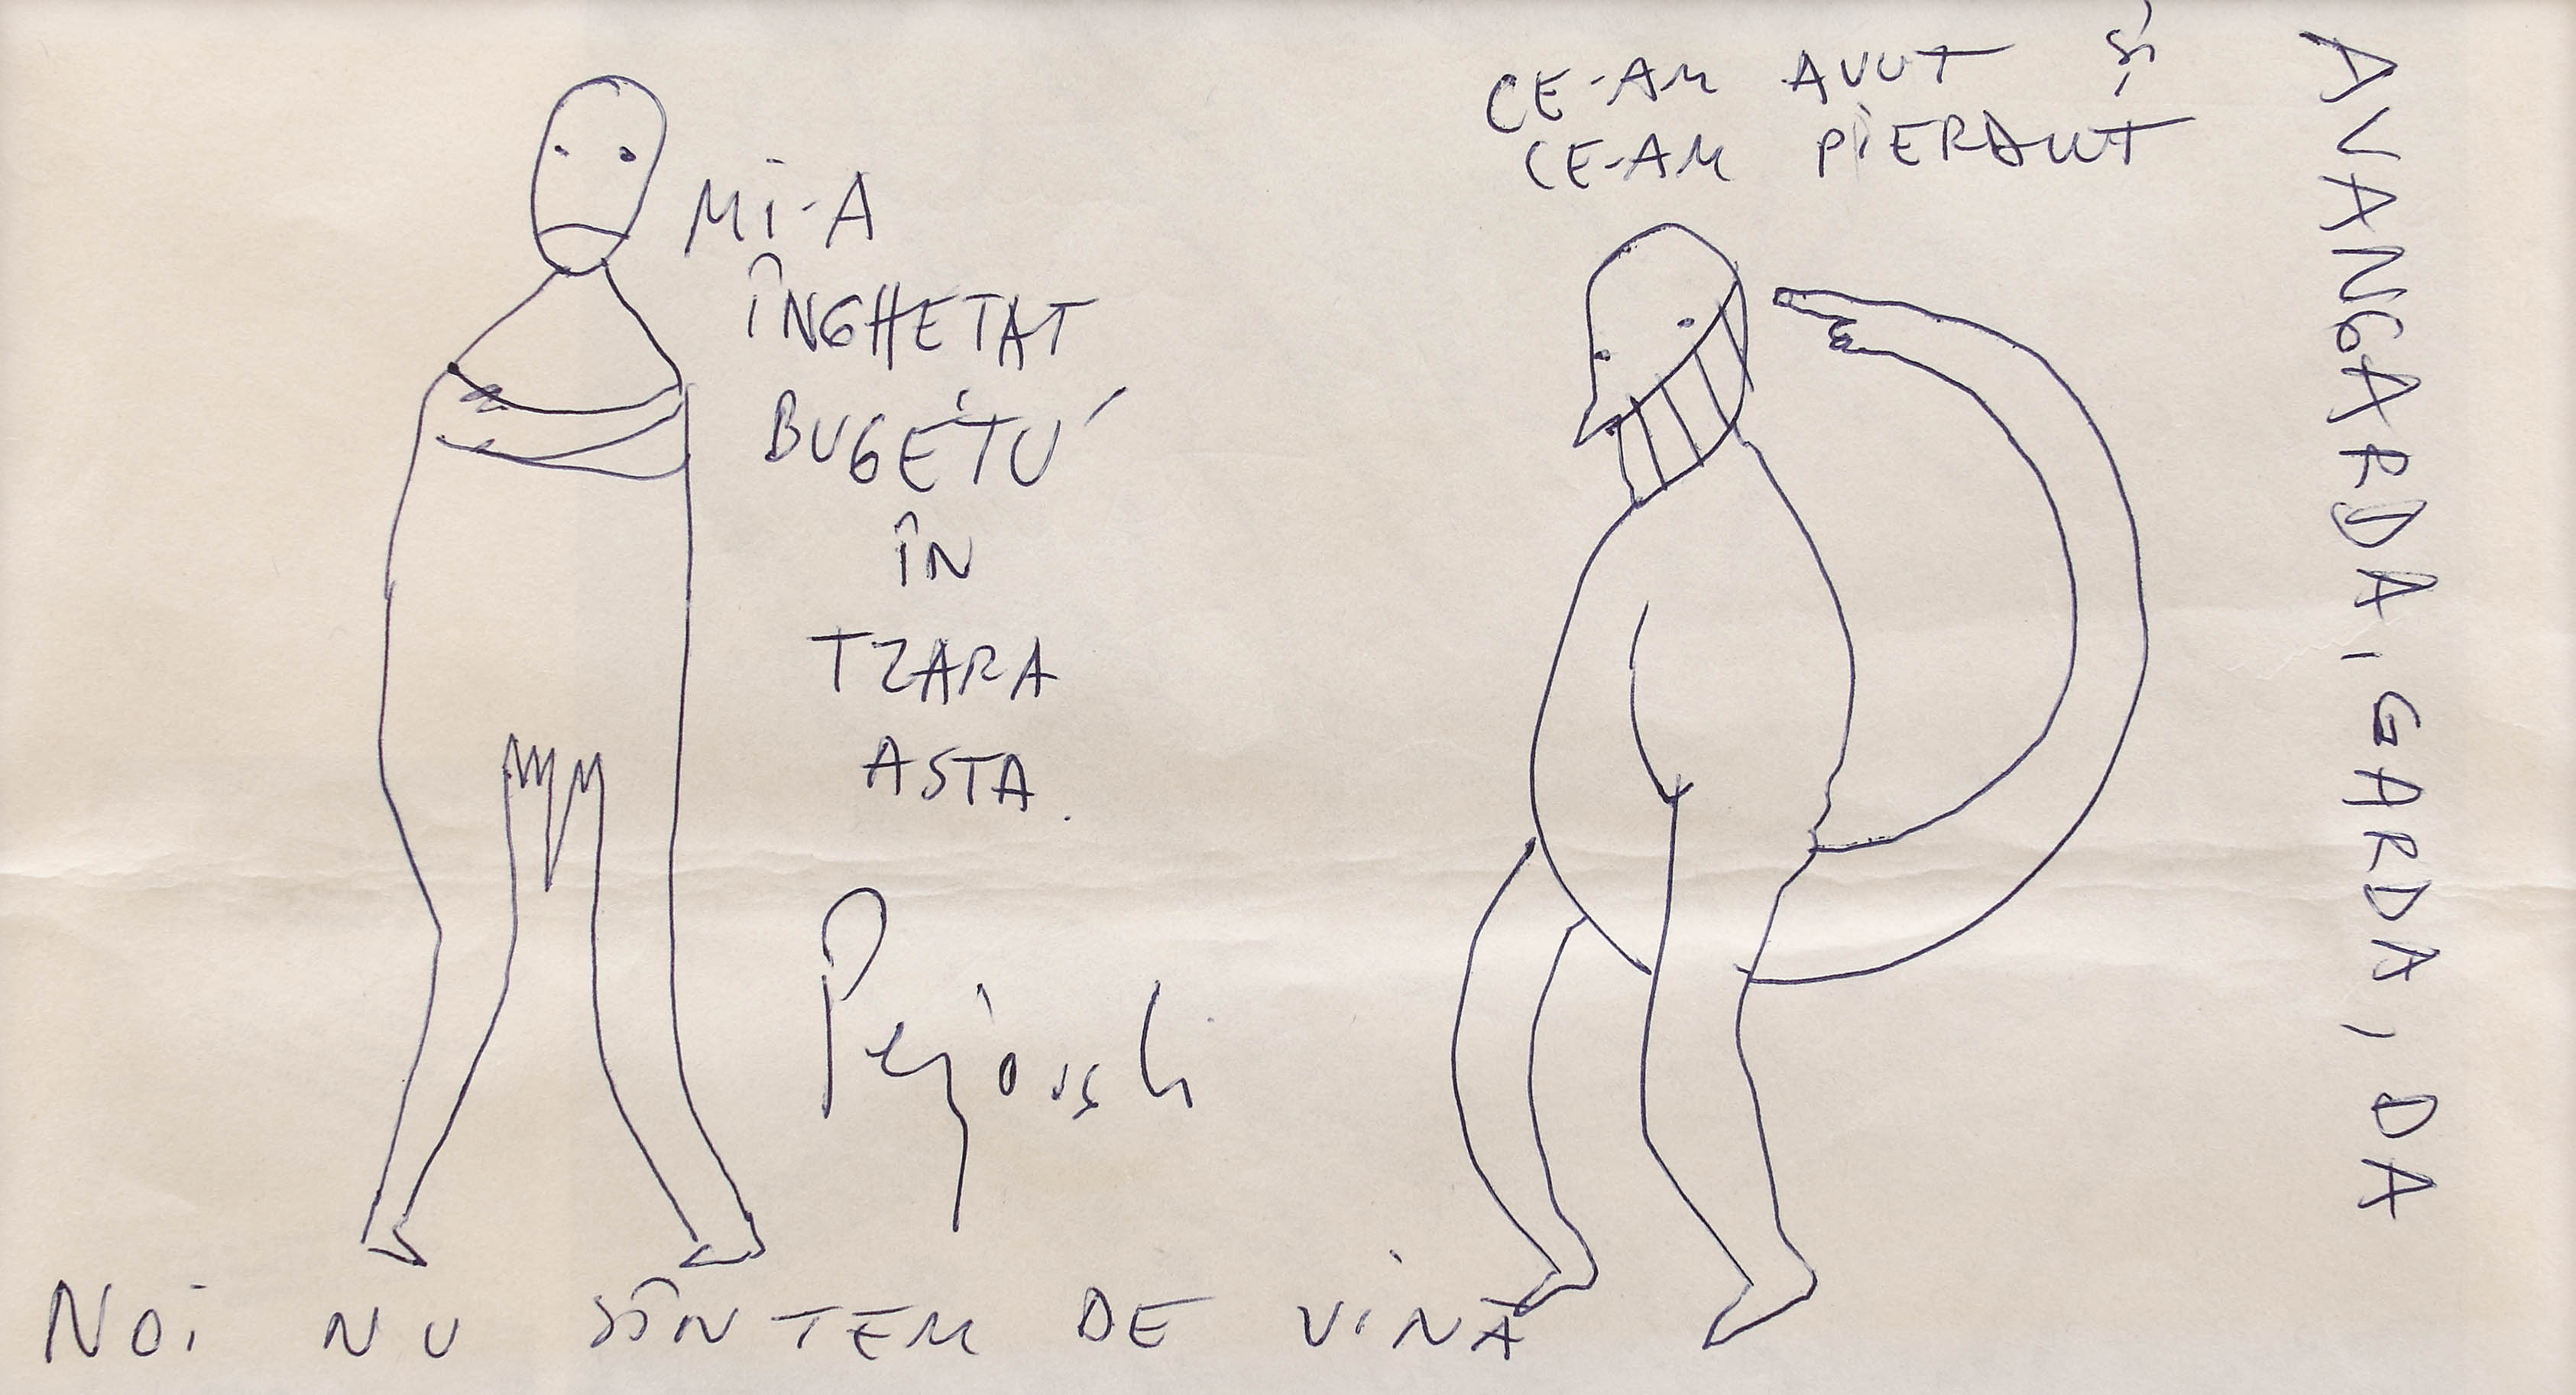 MI-A
ÎNGHETAT
BUGETU'
ÎN
TZARA
ASTA.
CE-AM AVUT ȘI
CE-AM PIERDUT
AVANGARDA, GARDA, DA
NOI NU SÎNTEM DE VINĂ